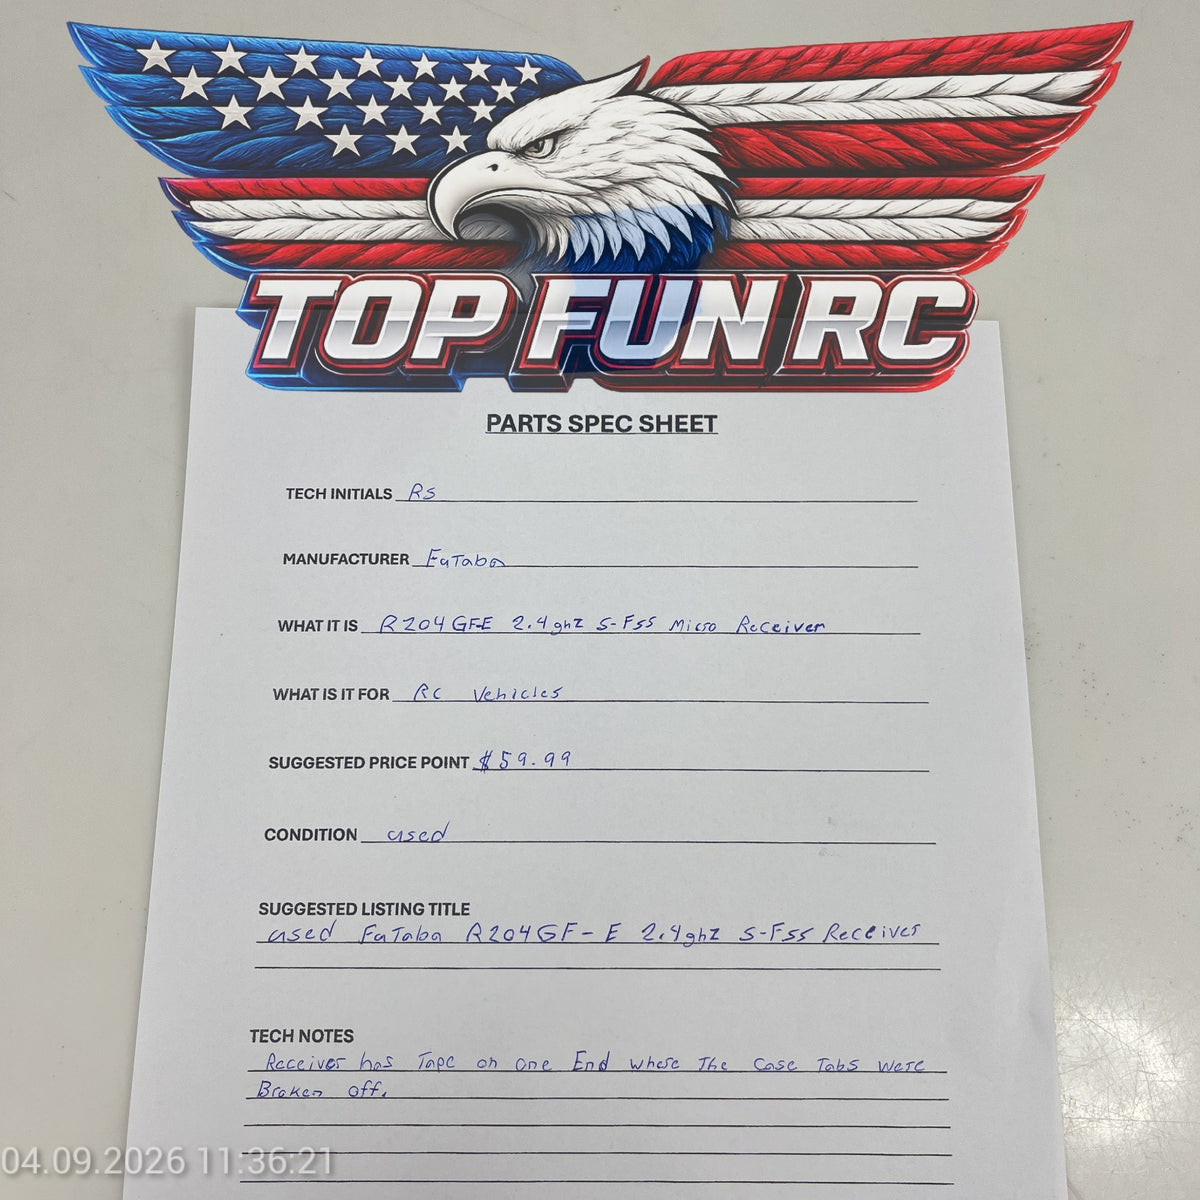 TOP FUN RC
PARTS SPEC SHEET
TECH INITIALS RS
MANUFACTURER FuTaba
WHAT IT IS R204GF-E 2.4ghz S-FSS Micro Receiver
WHAT IS IT FOR RC Vehicles
SUGGESTED PRICE POINT $59.99
CONDITION used
SUGGESTED LISTING TITLE
used FuTaba R204GF-E 2.4ghz S-FSS Receiver
TECH NOTES
Receiver has Tape on one End where The Case Tabs were
Broken off.
04.09.2026 11:36:21